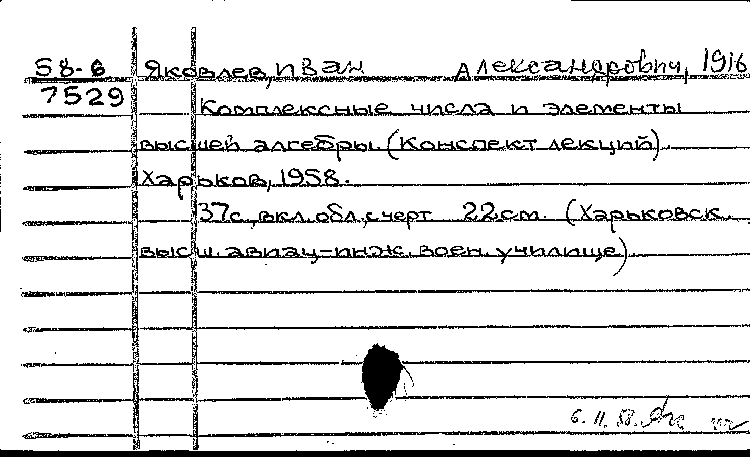 58-6 Яковлев, Иван Александрович, 1916
7529 Комплексные числа и элементы
высшей алгебры. (Конспект лекций).
Харьков, 1958.
37с., вкл. обл., с черт 22см. (Харьковск.
высш. авиац.-инж. воен. училище)
6.II.58.